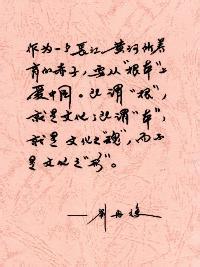 作为一个长江、黄河所养
育的赤子，要从“根本”上
爱中国。所谓“根”，
就是文化；所谓“本”，
就是文化之“魂”，而不
是文化之“形”。